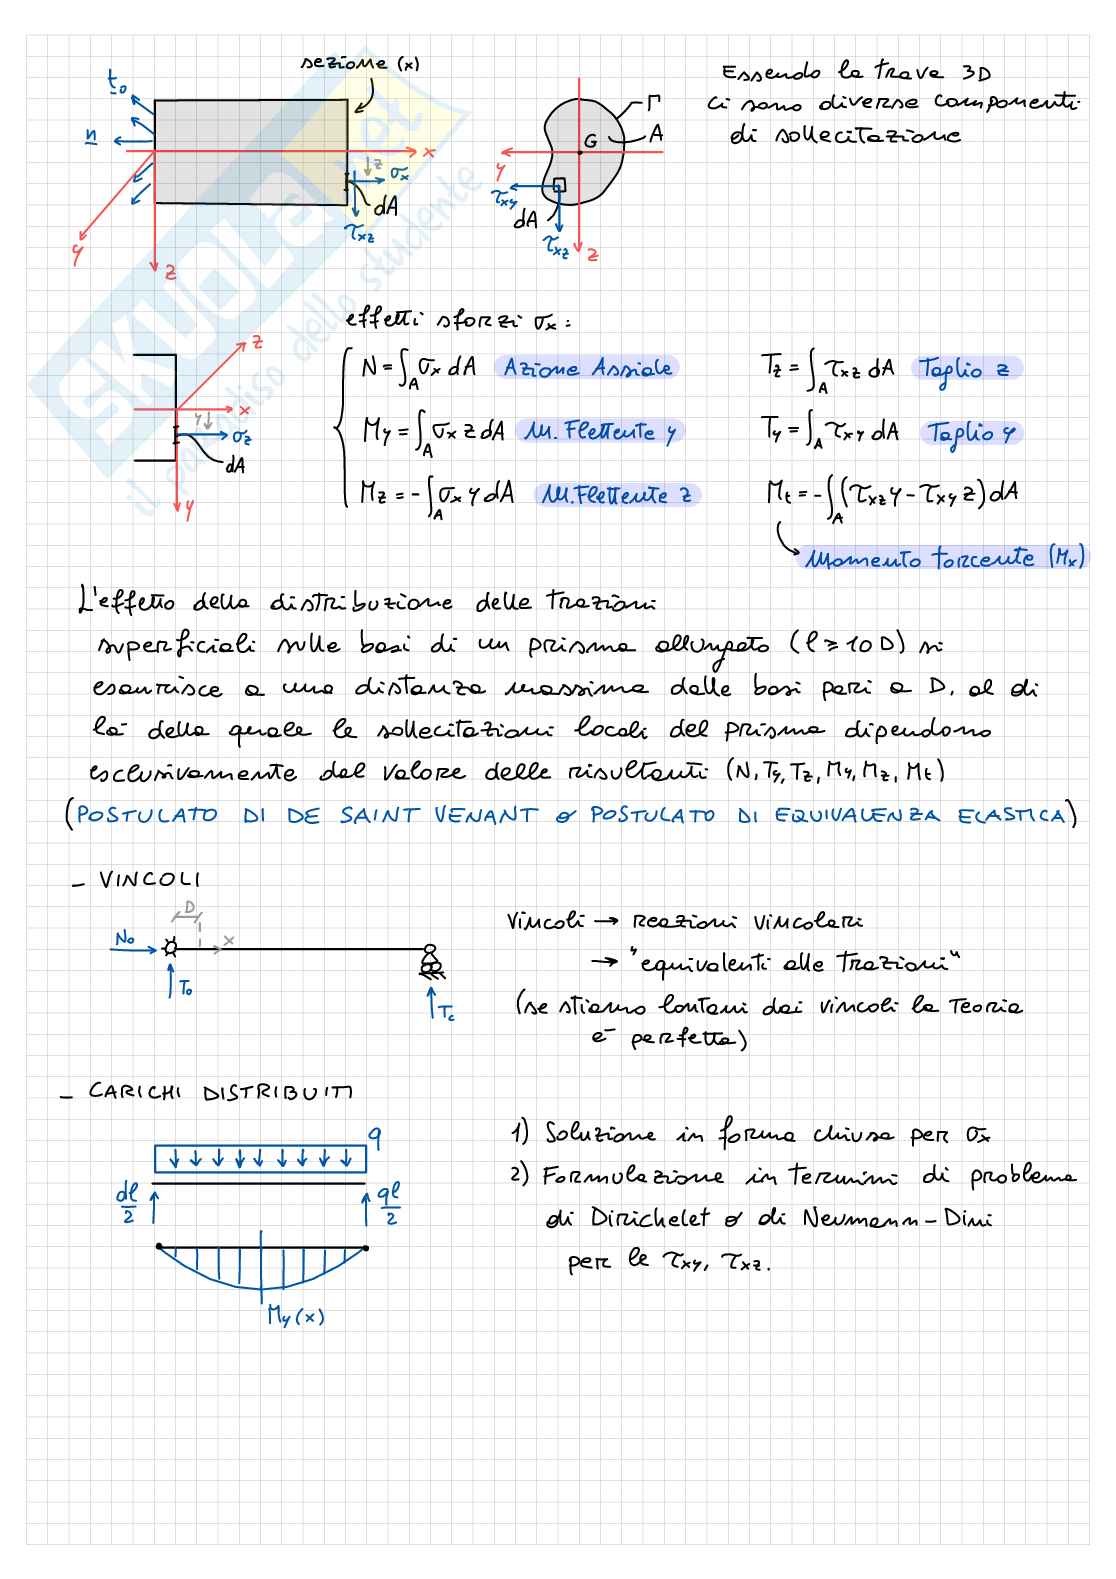 sezione (x)
t₀
n
x
z
σx
dA
τxz
y
z
Γ
A
G
y
τxy
dA
τxz
z
Essendo la trave 3D
ci sono diverse componenti
di sollecitazione
SKUOLA.net
il paradiso dello studente
effetti sforzi σx:
z
x
y
σz
dA
y
N = ∫A σx dA Azione Assiale
My = ∫A σx z dA M. Flettente y
Mz = -∫A σx y dA M. Flettente z
Tz = ∫A τxz dA Taglio z
Ty = ∫A τxy dA Taglio y
Mt = -∫A (τxz y - τxy z) dA
Momento torcente (Mx)
L'effetto della distribuzione delle trazioni
superficiali sulle basi di un prisma allungato (l ≥ 10 D) si
esaurisce a una distanza massima dalle basi pari a D, al di
là della quale le sollecitazioni locali del prisma dipendono
esclusivamente dal valore delle risultanti (N, Ty, Tz, My, Mz, Mt)
(POSTULATO DI DE SAINT VENANT o POSTULATO DI EQUIVALENZA ELASTICA)
- VINCOLI
D
N₀
x
T₀
Tc
Vincoli → reazioni vincolari
→ "equivalenti alle trazioni"
(se stiamo lontani dai vincoli la teoria
è perfetta)
- CARICHI DISTRIBUITI
q
dl/2
ql/2
My(x)
1) Soluzione in forma chiusa per σx
2) Formulazione in termini di problema
di Dirichelet o di Neumann-Dini
per le τxy, τxz.